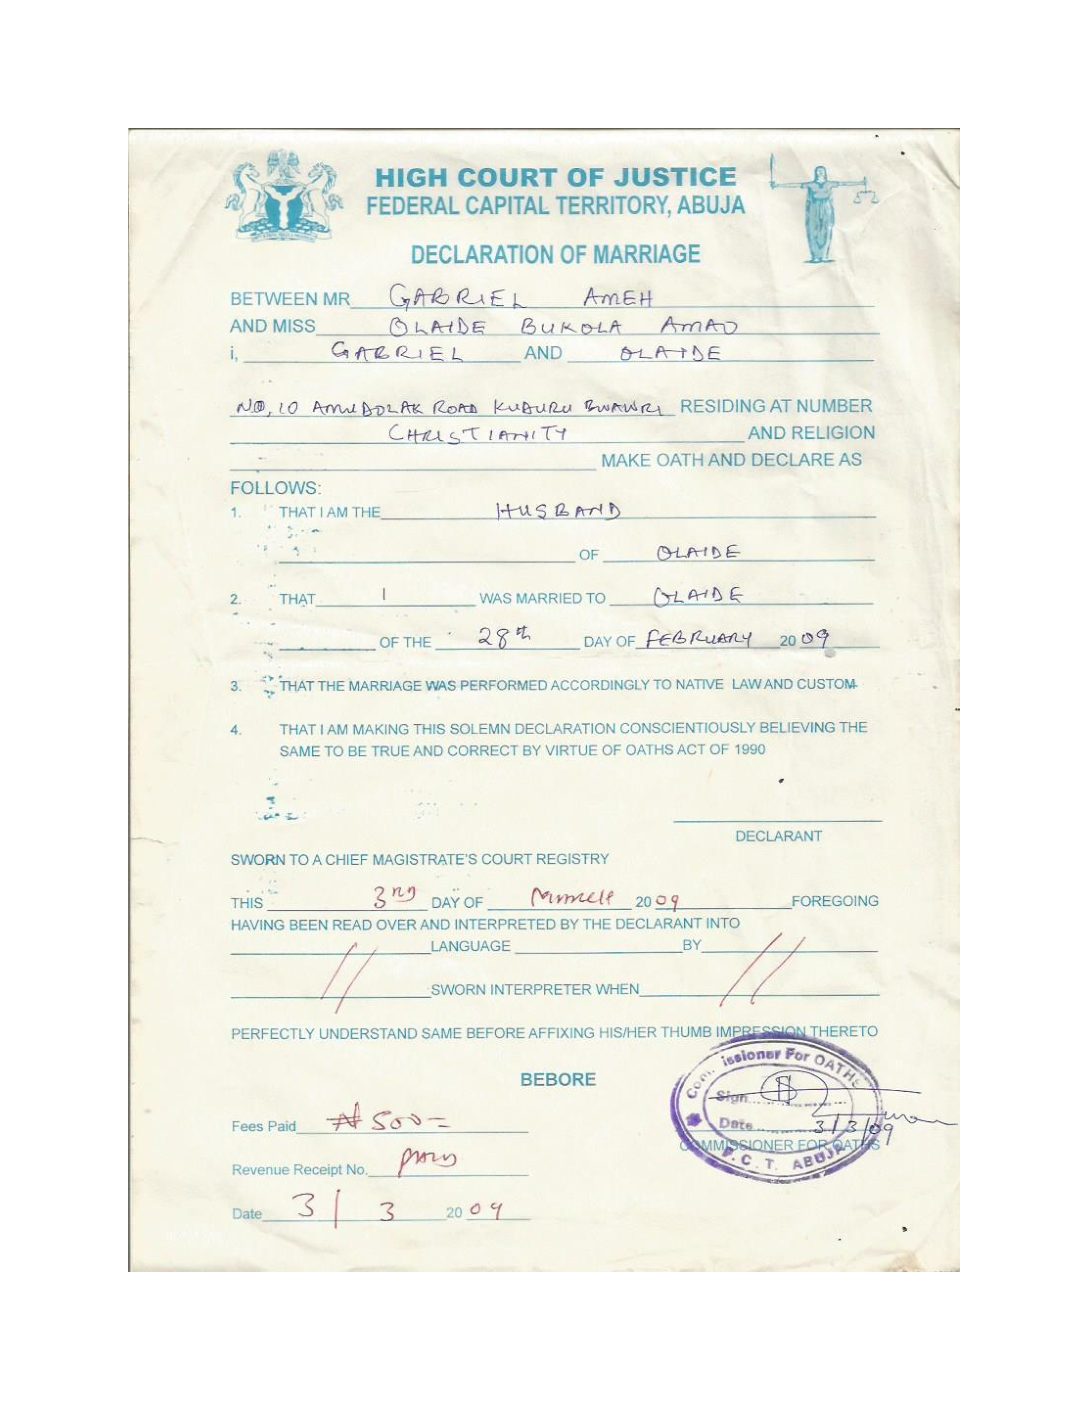 HIGH COURT OF JUSTICE
FEDERAL CAPITAL TERRITORY, ABUJA
DECLARATION OF MARRIAGE
BETWEEN MR GABRIEL AMEH
AND MISS OLAIDE BUKOLA AMAO
i, GABRIEL AND OLAIDE
NO, 10 ROAD KUBURU BWAWRI RESIDING AT NUMBER
CHRISTIANITY AND RELIGION
MAKE OATH AND DECLARE AS
FOLLOWS:
1. THAT I AM THE HUSBAND
OF OLAIDE
2. THAT I WAS MARRIED TO OLAIDE
OF THE 28th DAY OF FEBRUARY 2009
3. THAT THE MARRIAGE WAS PERFORMED ACCORDINGLY TO NATIVE LAW AND CUSTOM
4. THAT I AM MAKING THIS SOLEMN DECLARATION CONSCIENTIOUSLY BELIEVING THE
SAME TO BE TRUE AND CORRECT BY VIRTUE OF OATHS ACT OF 1990
DECLARANT
SWORN TO A CHIEF MAGISTRATE'S COURT REGISTRY
THIS 3rd DAY OF March 2009 FOREGOING
HAVING BEEN READ OVER AND INTERPRETED BY THE DECLARANT INTO
LANGUAGE BY
SWORN INTERPRETER WHEN
PERFECTLY UNDERSTAND SAME BEFORE AFFIXING HIS/HER THUMB IMPRESSION THERETO
BEBORE
Commissioner For OATHS
Sign
Date 3/3/09
F.C.T. ABUJA
COMMISSIONER FOR OATHS
Fees Paid ₦500=
Revenue Receipt No.
Date 3/3 2009